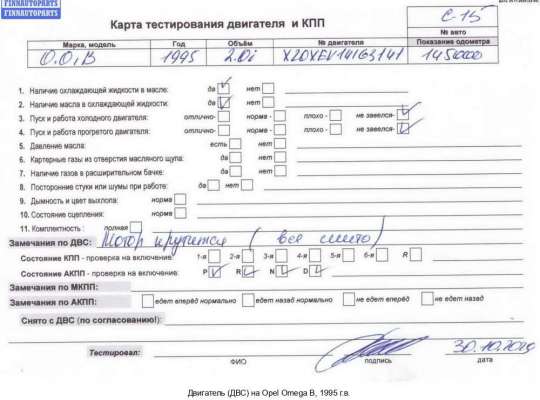 FINNAUTOPARTS
FINNAUTOPARTS
Карта тестирования двигателя и КПП
С-15
№ авто
Марка, модель Год Объём № двигателя Показание одометра
O.O.B 1995 2.0i X20XEV14163141
1. Наличие охлаждающей жидкости в масле: да нет
2. Наличие масла в охлаждающей жидкости: да нет
3. Пуск и работа холодного двигателя: отлично- норма - плохо - не завелся-
4. Пуск и работа прогретого двигателя: отлично- норма - плохо - не завелся-
5. Давление масла: есть нет
6. Картерные газы из отверстия масляного щупа: да нет
7. Наличие газов в расширительном бачке: да нет
8. Посторонние стуки или шумы при работе: да нет
9. Дымность и цвет выхлопа: норма
10. Состояние сцепления: норма
11. Комплектность : полная
Замечания по ДВС: Мотор крутится (все снято)
Состояние КПП - проверка на включение: 1-я 2-я 3-я 4-я 5-я 6-я R
Состояние АКПП - проверка на включение: P R N D
Замечания по МКПП:
Замечания по АКПП: едет вперёд нормально едет назад нормально не едет вперёд не едет назад
Снято с ДВС (по согласованию!):
Тестировал:
ФИО подпись дата
Двигатель (ДВС) на Opel Omega B, 1995 г.в.